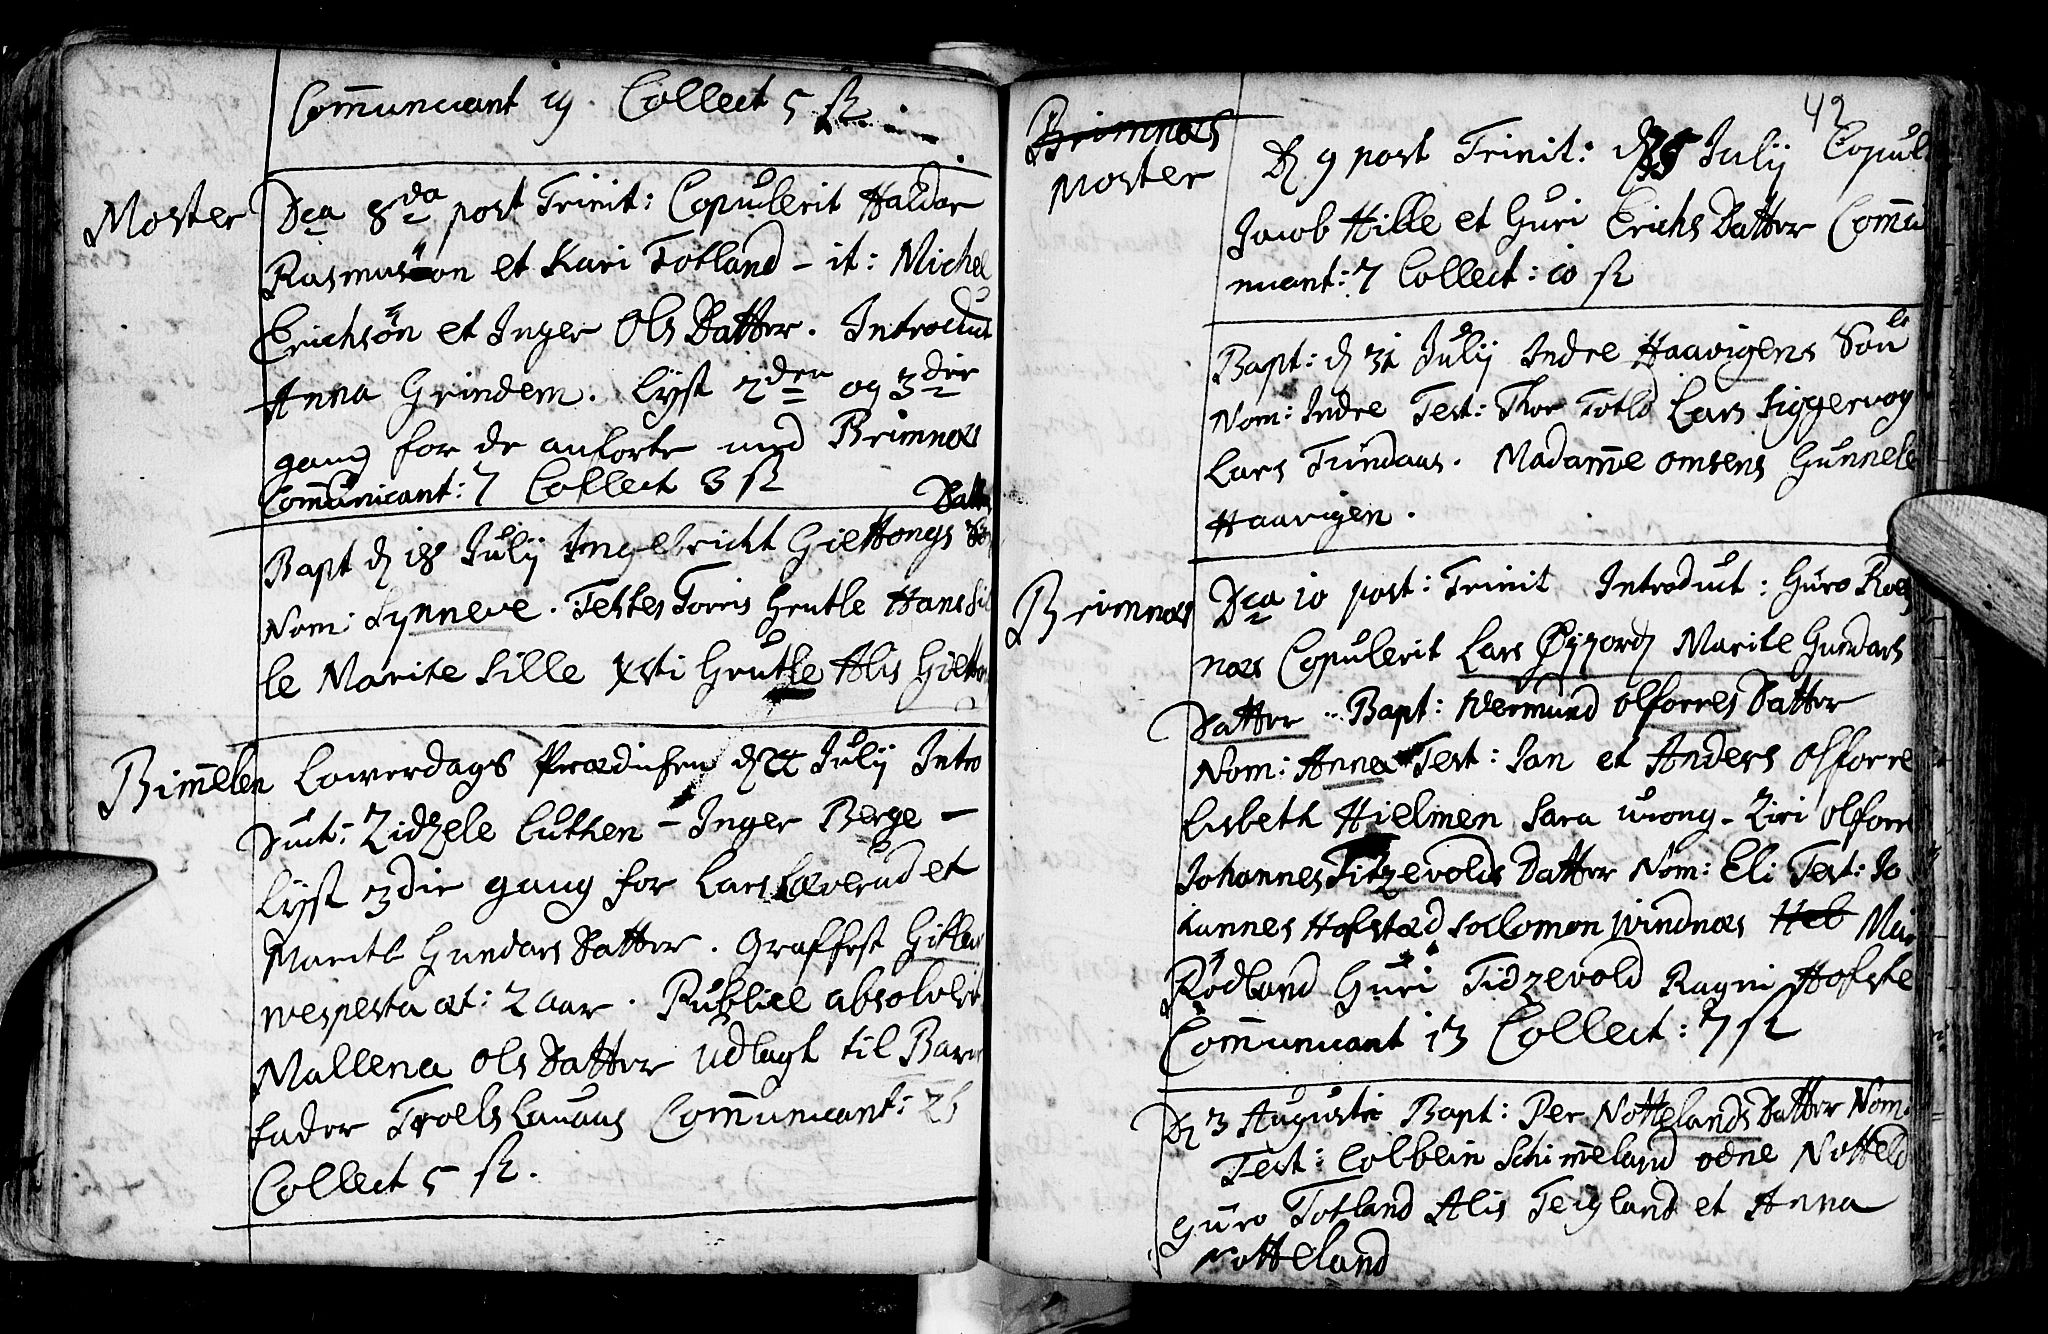 Com̄unicant 19. Collect 5 ß
Moster
Dca 8da post Trinit: Copulerit Haldor
Rasmuson et Kari Totland – it: Michel
Erichsøn et Inger Ols Datter. Introduct
Anna Grindem. Lyst 2den og 3die
gang for de anførte med Brimnæs
Com̄unicant: 7 Collect 3 ß
Datter
Bapt d 18 Julij Ingebricht Giettongs
Nom: Synneve. Testes Torris Grutle Hans Sil
le Marite Sille Xsti Grutle Alis
Bim̄elen
Lowerdags Prædichen d 22 Julij Intro
duct: Zidzele Luthen – Inger Berge –
Lyst 3die gang for Lars Læverud et
Marite Gundars Datter. Graffest
æt: 2 aar. Publice absolverit
Mallena Ols Datter udlagt til Barn
fader Troels Lauaas Com̄unicant: 25
Collect 5 ß.
42
Brimnæs
Moster
D 9 post Trinit: d 25 Julij Copul
Jacob Hille et Guri Erichs Datter Com̄u
nicant: 7 Collect: 10 ß
Bapt: d 31 Julij Indre Haavigens Søn
Nom: Indre Test: Thor Totld Lars Siggervog
Lars Tundaas. Madam̄e Omsens Gunnele
Haavigen.
Brimnæs
Dca 10 post: Trinit Introduct: Guro Roe
næs Copulerit Lars Øyjord Marite Gundars
Datter. Bapt: Wermund Olforres Datter
Nom: Anna Test: Jan et Anders Olforre
Lisbeth Hielmen Sara Wrong – Ziri Olforre
Johannes Titzevolds Datter Nom: Eli Test: Jo
hannes Hofstad Solomon Windnæs Heb
Rødland Guri Tidzevold Ragni Hofste
Com̄unicant 13 Collect: 7 ß
D 3 Augusti Bapt: Per Nottelands Datter Nom:
Test: Colbein Schim̄eland Odne Notteld
Guro Totland Alis Teigland et Anna
Notteland